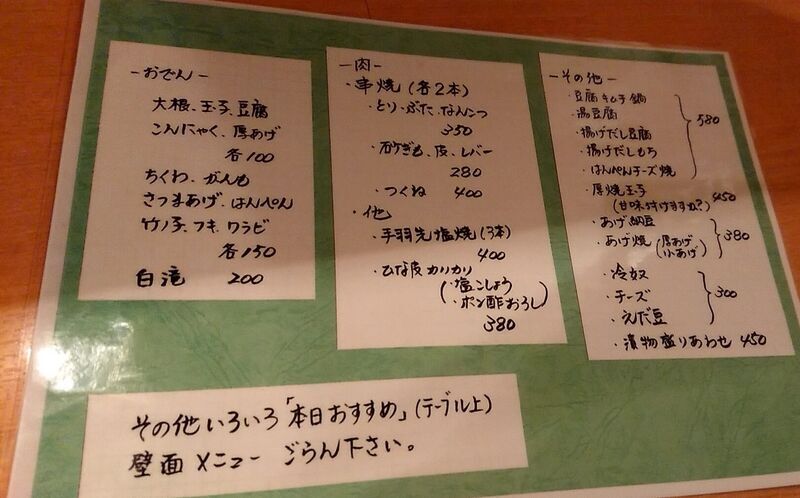 －おでん－
大根、玉子、豆腐
こんにゃく、厚あげ
各100
ちくわ、がんも
さつまあげ、はんぺん
竹ノ子、フキ、ワラビ
各150
白滝 200
－肉－
・串焼(各2本)
・とり・ぶた、なんこつ
350
・砂ぎも、皮、レバー
280
・つくね 400
・他
・手羽先塩焼(3本)
400
・ひな皮カリカリ
(・塩こしょう
・ポン酢おろし)
380
－その他－
・豆腐キムチ鍋
・湯豆腐
・揚げだし豆腐
・揚げだしもち
・はんぺんチーズ焼
580
・厚焼玉子 450
(甘味付けますか?)
・あげ納豆
・あげ焼(厚あげ 小あげ)
380
・冷奴
・チーズ
・えだ豆
300
・漬物盛りあわせ 450
その他いろいろ「本日おすすめ」(テーブル上)
壁面メニューごらん下さい。